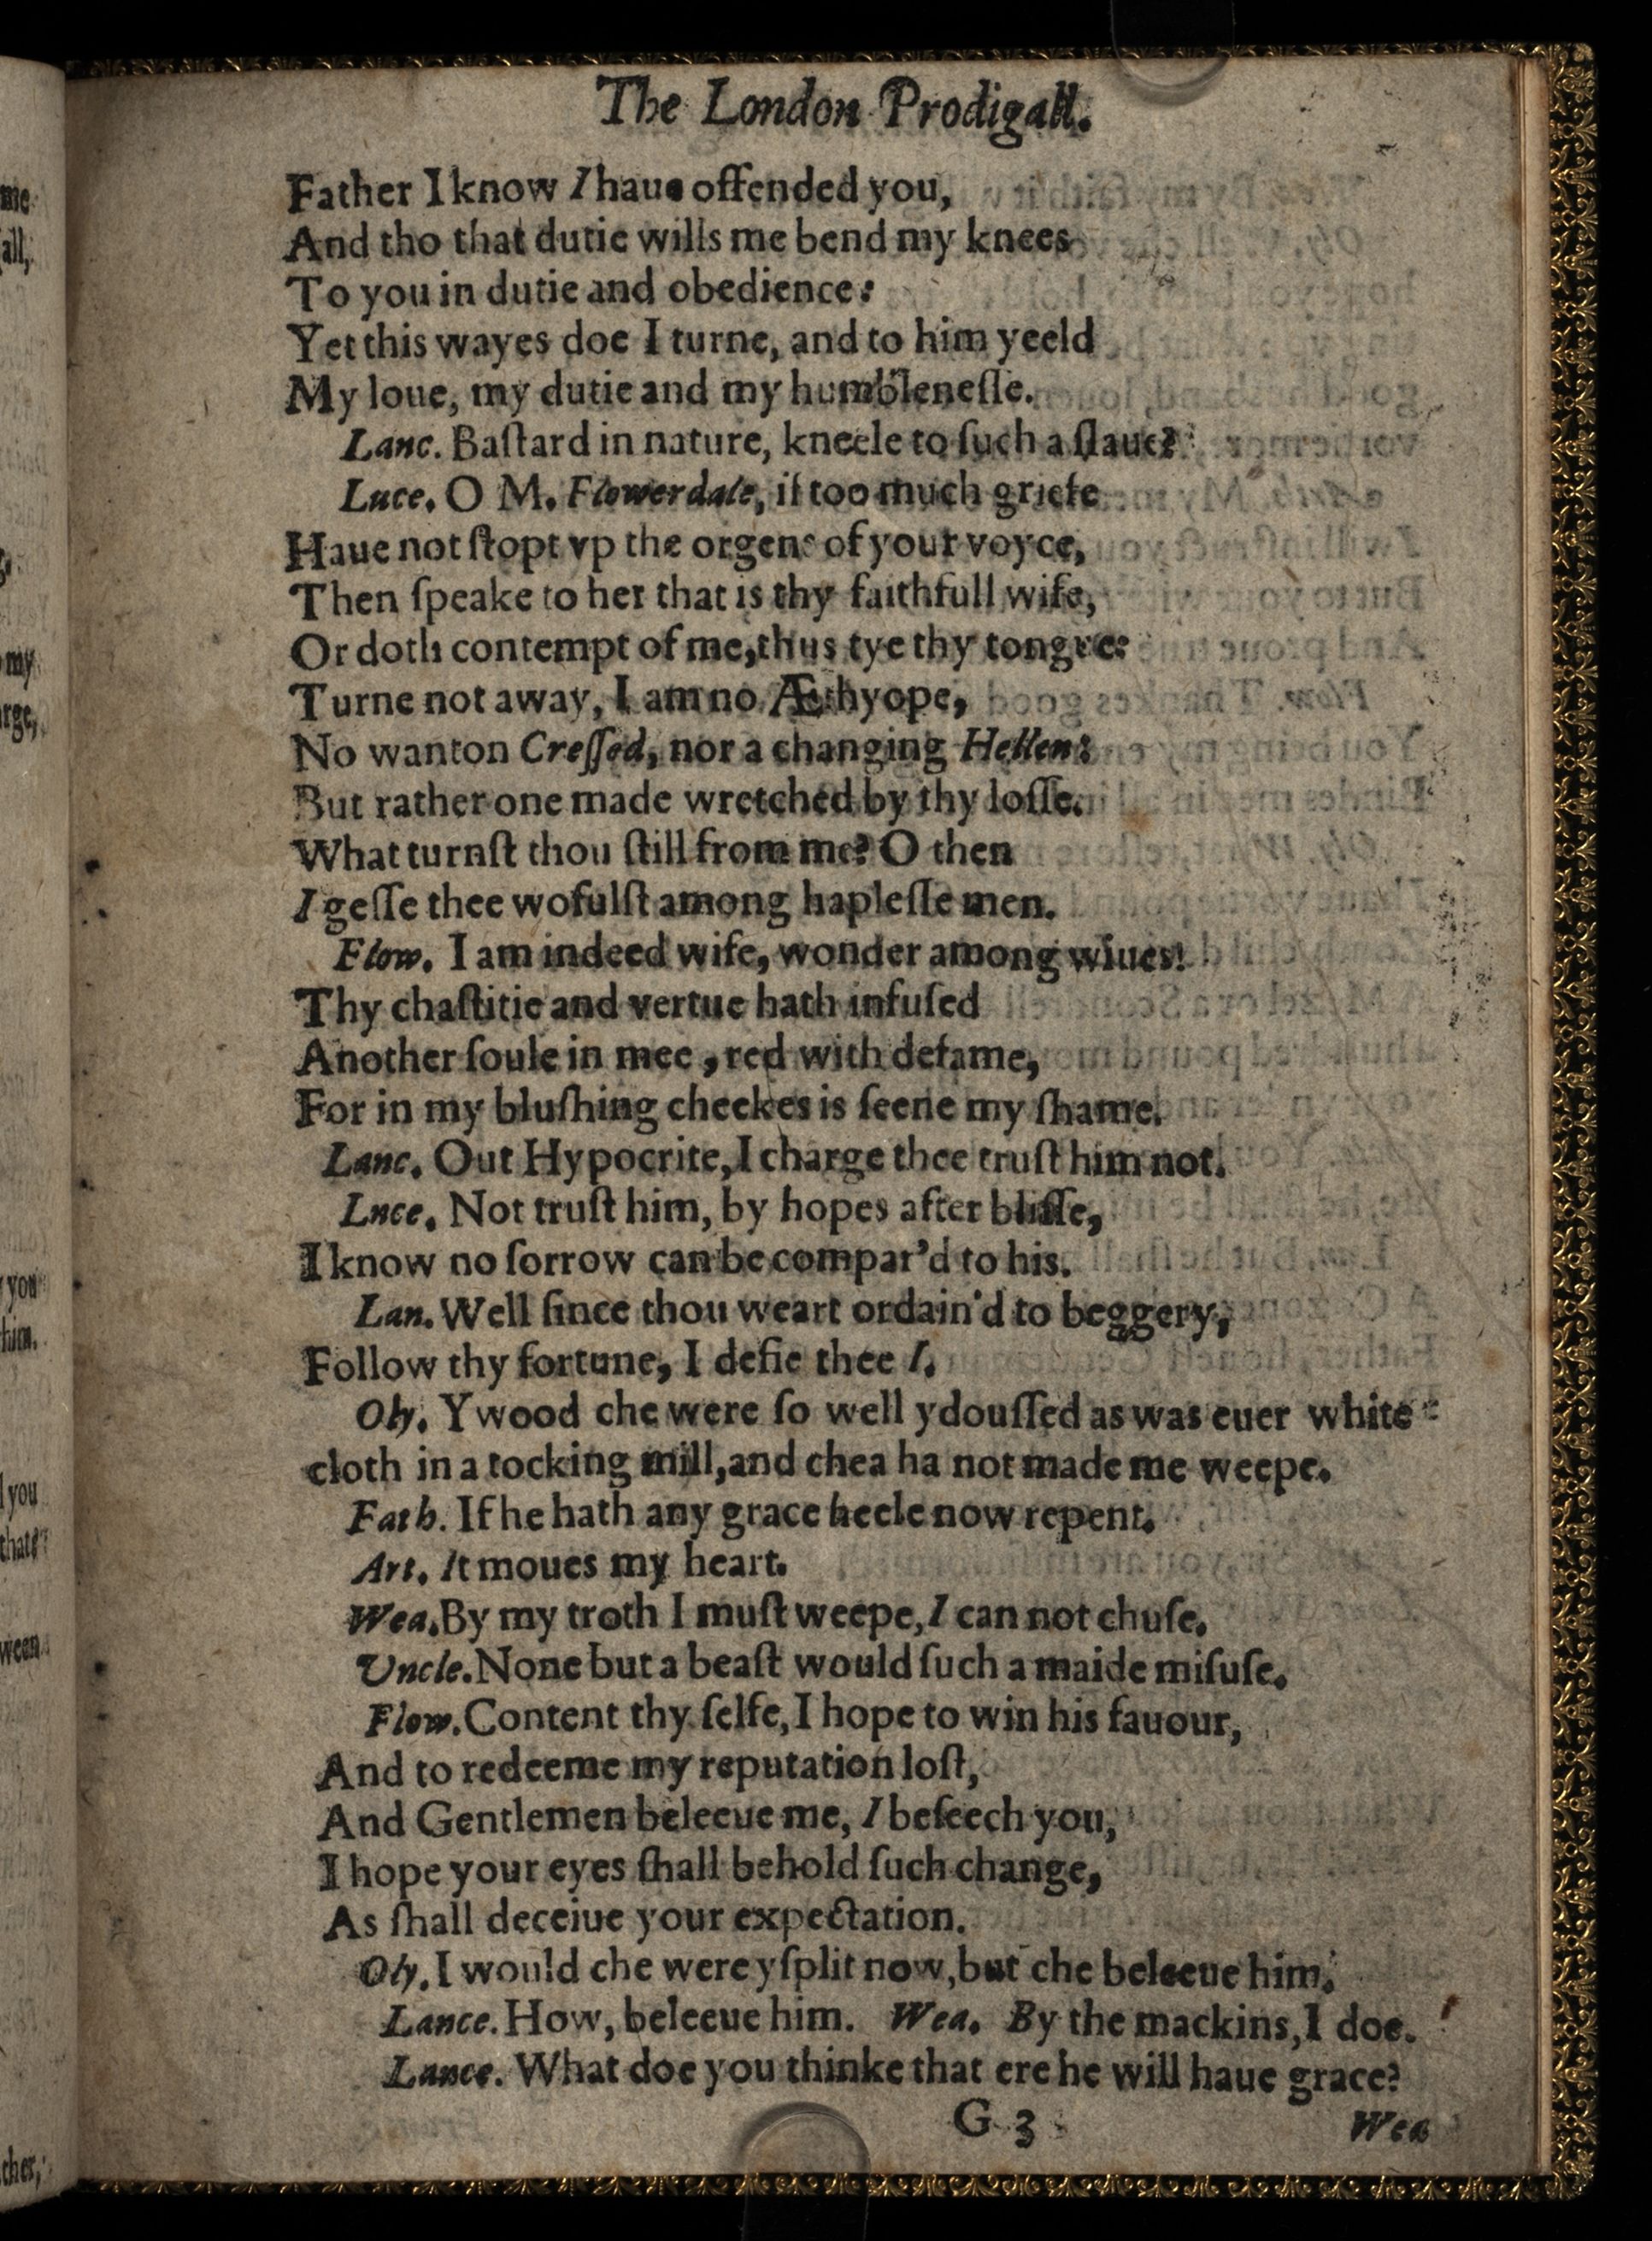 The London Prodigall.
Father I know I haue offended you,
And tho that dutie wills me bend my knees
To you in dutie and obedience:
Yet this wayes doe I turne, and to him yeeld
My loue, my dutie and my humbleneſſe.
Lanc. Baſtard in nature, kneele to ſuch a ſlaue?
Luce. O M. Flowerdale, if too much griefe
Haue not ſtopt vp the orgens of your voyce,
Then ſpeake to her that is thy faithfull wife,
Or doth contempt of me, thus tye thy tongve:
Turne not away, I am no Æthyope,
No wanton Creſſed, nor a changing Hellen:
But rather one made wretched by thy loſſe.
What turnſt thou ſtill from me? O then
I geſſe thee wofulſt among hapleſſe men.
Flow. I am indeed wife, wonder among wiues!
Thy chaſtitie and vertue hath infuſed
Another ſoule in mee, red with defame,
For in my bluſhing cheekes is ſeene my ſhame.
Lanc. Out Hypocrite, I charge thee truſt him not.
Lnce. Not truſt him, by hopes after bliſſe,
I know no ſorrow can be compar'd to his.
Lan. Well ſince thou weart ordain'd to beggery,
Follow thy fortune, I defie thee I.
Oly. Y wood che were ſo well ydouſſed as was euer white
cloth in a tocking mill, and chea ha not made me weepe.
Fath. If he hath any grace heele now repent.
Art. It moues my heart.
Wea. By my troth I muſt weepe, I can not chuſe.
Uncle. None but a beaſt would ſuch a maide miſuſe.
Flow. Content thy ſelfe, I hope to win his fauour,
And to redeeme my reputation loſt,
And Gentlemen beleeue me, I beſeech you,
I hope your eyes ſhall behold ſuch change,
As ſhall deceiue your expectation.
Oly. I would che were yſplit now, but che beleeue him.
Lance. How, beleeue him. Wea. By the mackins, I doe.
Lance. What doe you thinke that ere he will haue grace?
G 3 Wea